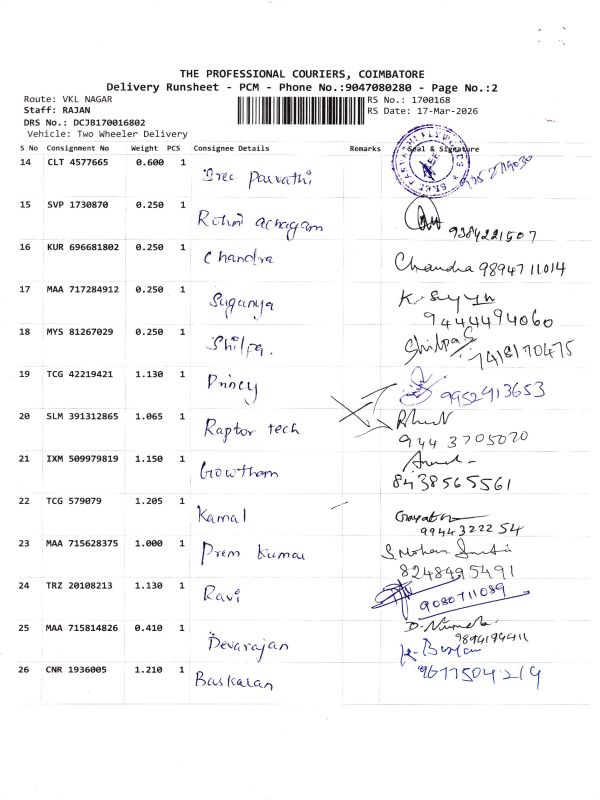 THE PROFESSIONAL COURIERS, COIMBATORE
Delivery Runsheet - PCM - Phone No.:9047080280 - Page No.:2
Route: VKL NAGAR
Staff: RAJAN
DRS No.: DCJB170016802
RS No.: 1700168
RS Date: 17-Mar-2026
Vehicle: Two Wheeler Delivery
S No Consignment No Weight PCS Consignee Details Remarks Seal & Signature
14 CLT 4577665 0.600 1 Sree Parvathi
15 SVP 1730870 0.250 1 Rohini 9384221507
16 KUR 696681802 0.250 1 Chandra Chandra 9894711014
17 MAA 717284912 0.250 1 Suganya 9444494060
18 MYS 81267029 0.250 1 Shilpa. Shilpa S 7418170475
19 TCG 42219421 1.130 1 Princy 9952913653
20 SLM 391312865 1.065 1 Raptor tech 9443705070
21 IXM 509979819 1.150 1 Gowtham 8438565561
22 TCG 579079 1.205 1 Kamal 9944322254
23 MAA 715628375 1.000 1 Prem Kumar 8248495491
24 TRZ 20108213 1.130 1 Ravi 9080711089
25 MAA 715814826 0.410 1 Devarajan 9894194411
26 CNR 1936005 1.210 1 Baskaran 9677504219